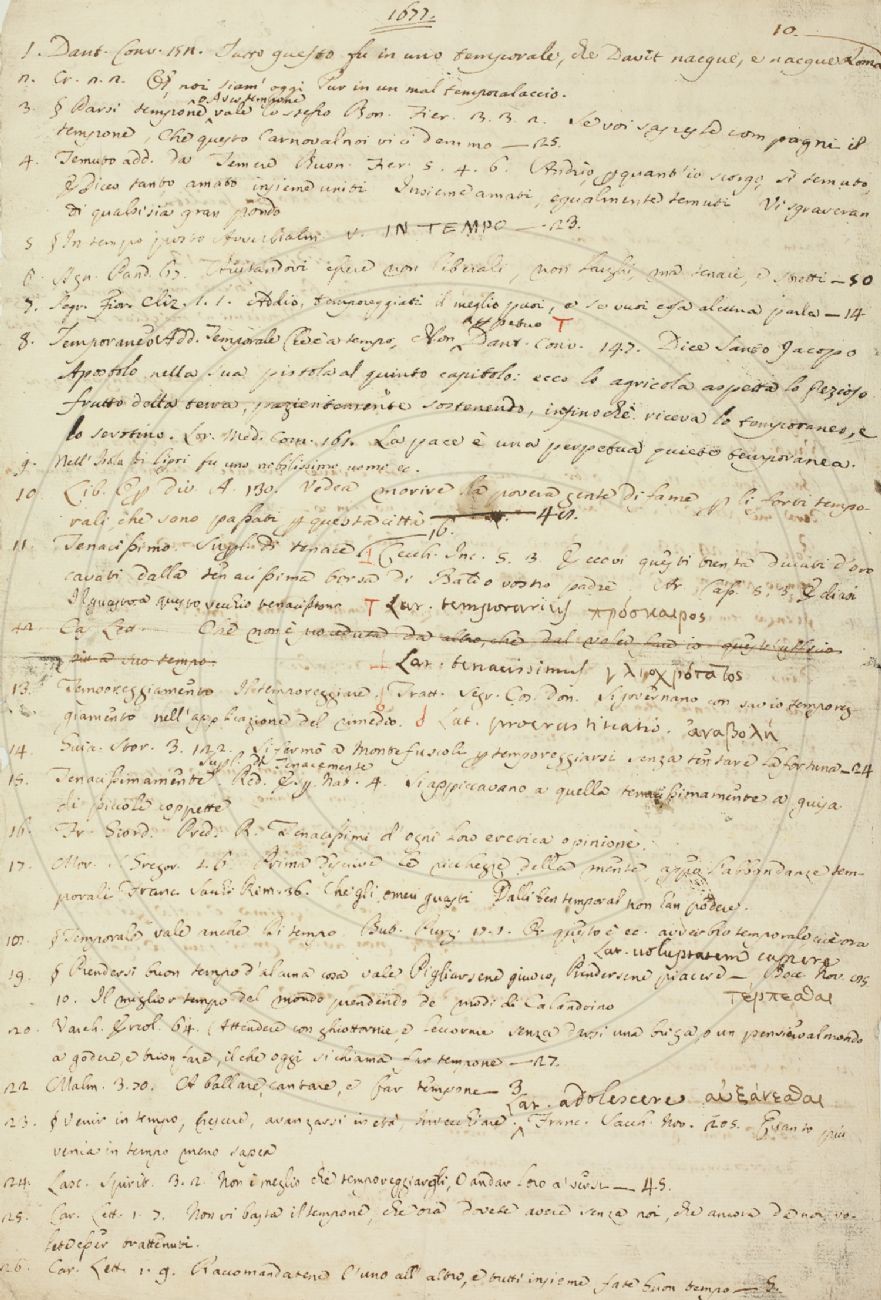 1677.
10.
1. Dant. Conv. 151. Tutto questo fu in uno temporale, che Davit nacque, e nacque Roma
2. Cr. n. 2. noi siam' oggi Pur in un mal temporalaccio.
3. § Darsi tempone, o Aver tempone vale lo stesso Bon. Fier. 3. 3. 2. Se voi sapeste compagni il
tempone, Che questo Carnoval noi vi ci demmo — 25.
4. Temuto add. da Temere Buon. Fier. 5. 4. 6. quant' io scorgo, sì temuto,
E dico tanto amato insieme uniti Insieme amati, egualmente temuti Vi sgraveran
Di qualsisia gran pondo
5 § In tempo posto Avverbialm. v. IN TEMPO — 23.
6. Agn. Pand. 67. essere non liberali, non larghi, ma tenaci, e stretti — 50
7. Segr. Fior. Cliz. 1. 1. Addio, temporeggiati il meglio puoi, e se vuoi cosa alcuna parla — 14
8. Temporaneo Add. Temporale Che è a tempo, e Non perpetuo T Dant. Conv. 147. Dice Santo Jacopo
Apostolo nella sua pistola al quinto capitolo: ecco lo agricola aspetta lo prezioso
frutto della terra, pazientemente sostenendo, infino che riceva lo temporaneo, e
lo serotino. Lor. Med. Com. 161. La pace è una perpetua quiete temporanea.
9. Nell' Isola di Lipri fu uno nobilissimo uomo ec.
10. Lib. Div. A. 130. Vedea morire la povera gente di fame li forti tempo-
rali, che sono passati questa città 42.
16.
11. Tenacissimo. Superl. di tenace Cecch. Inc. 5. 3. E eccovi questi trenta ducati d'oro
cavati dalla tenacissima borsa di vostro padre 5. 5. E dirai
questo vecchio tenacissimo T Lat. temporarius πρόσκαιρος
12. Ca Leo — Che non è veduta da altro, che dal vole
più a suo tempo.
Lat. tenacissimus γλισχρότατος
13. Temporeggiamento Il temporeggiare. Tratt. Segr. Cos. Don. Si governano con savio temporeg-
giamento nell' applicazione del rimedio. Lat. procrastinatio. ἀναβολή
14. Guic. Stor. 3. 122. Si fermò a Montefiascoli temporeggiarsi senza tentare la fortuna — 24
15. Tenacissimamente Superl. di Tenacemente Red. Nat. 4. Si appiccavano a quella tenacissimamente a guisa
di piccole coppette
16. Fr. Giord. Pred. R. Tenacissimi d' ogni loro eretica opinione.
17. Mor. S. Gregor. 1. 6. Prima descrive le ricchezze della mente, l' abbondanze tem-
porali Franc. Sacch. Rim. 36. Che gli omeri guasti Dalli ben temporal non l'an podere.
18. § Temporale vale anche Di tempo. But. Purg. 17. 1. questo è ec. avverbio temporale cioè ora
Lat. voluptatem capere
19. § Prendersi buon tempo d'alcuna cosa vale Pigliarsene giuoco, Prendersene piacere — Bocc. Nov.
10. Il miglior tempo del mondo prendendo de' modi di Calandrino τέρπεσθαι
20. Varch. Ercol. 64. Attendere con ghiottornie, e leccornie senza darsi una briga, o un pensiero al mondo
a godere, e trionfare, il che oggi si chiama far tempone — 27.
22. Malm. 3. 70. A ballare, cantare, e far tempone — 3
Lat. adolescere αὐξάνεσθαι
23. § Venir in tempo, Crescere, avanzarsi in età, Invecchiare. Franc. Sacch. Nov. 205. Quanto più
venìa in tempo meno sapea
24. Lasc. Spirit. 3. 2. Non è meglio che temporeggiargli, O andar loro a' versi — 45.
25. Car. Lett. 1. 7. Non vi basta il tempone, che ora dovete avere senza noi, che ancora da noi vo-
lete esser trattenuti.
26. Car. Lett. 1. 9. Raccomandatene l'uno all' altro, e tutti insieme fate buon tempo — 8.